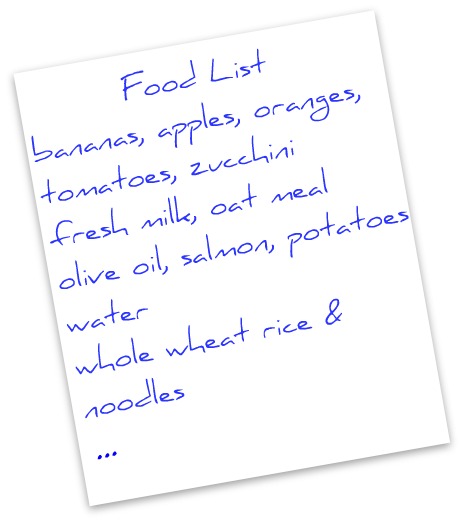 Food List
bananas, apples, oranges,
tomatoes, zucchini
fresh milk, oat meal
olive oil, salmon, potatoes
water
whole wheat rice &
noodles
...